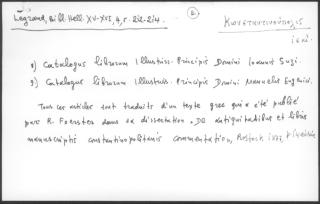 Legrand, Bibl. Hell. XV-XVI, 4, p. 212-214.
E.
Κωνσταντινούπολις
8) Catalogus librorum Illustriss. Principis Domini Ioannis Suzi.
9) Catalogus librorum Illustriss. Principis Domini Manuelis Eugenici.
Tous ces articles sont traduits d'un texte grec qui a été publié
par R. Foerster dans sa dissertation. De antiquitatibus et libris
manuscriptis constantinopolitanis commentatio, Rostock 1877,